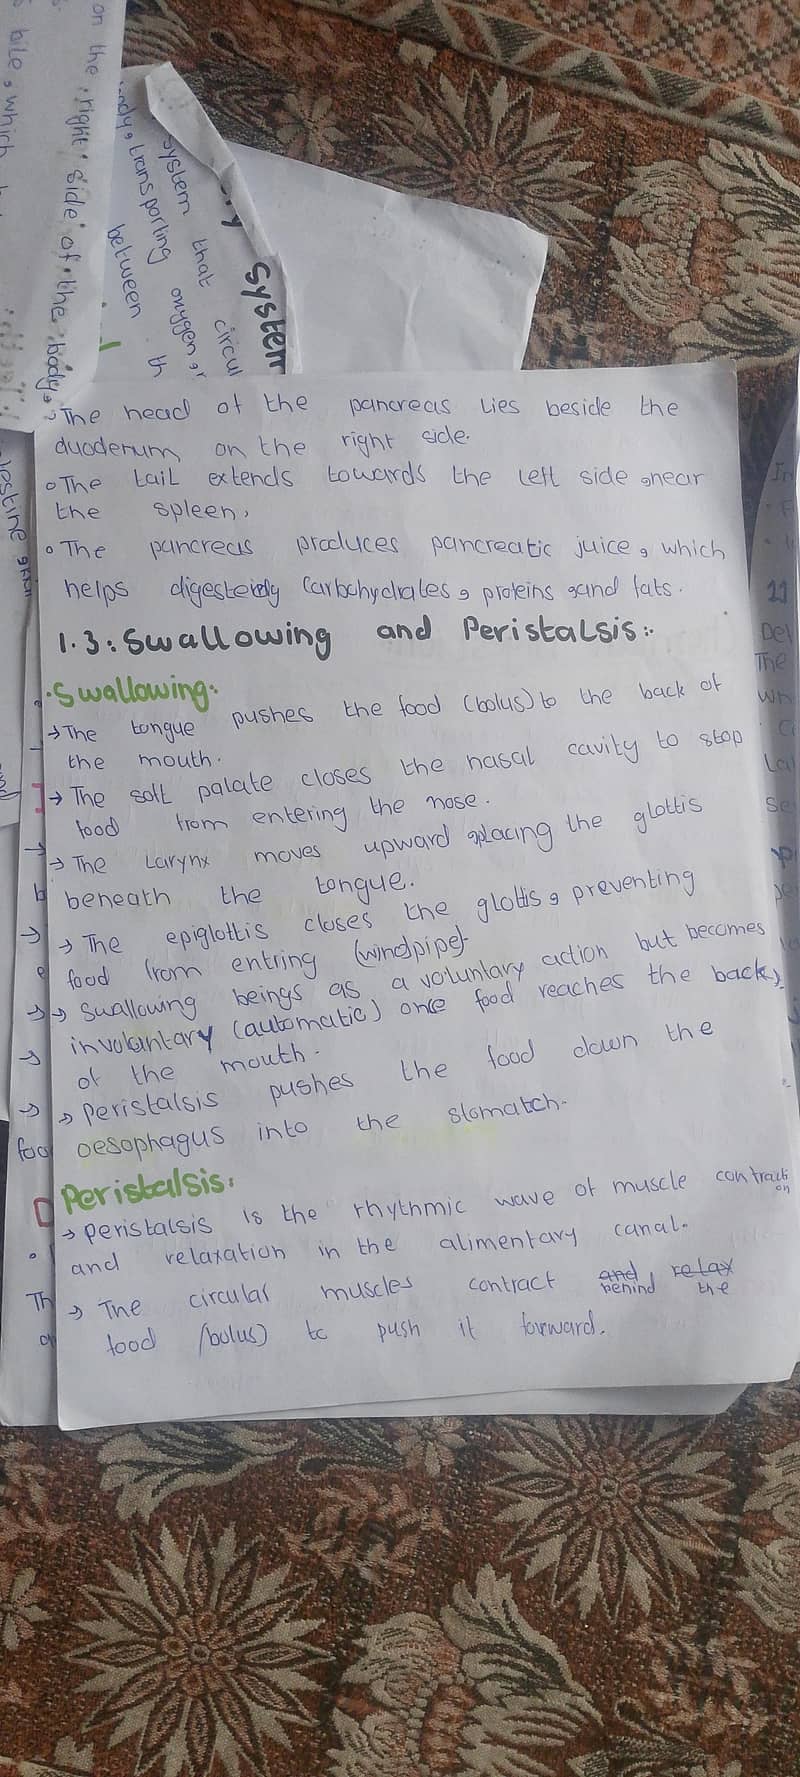 on the right side of the body,
bile, which
system that circul
ody, transporting oxygen
between th
System
The head of the pancreas lies beside the
duoderum on the right side.
The tail extends towards the left side , near
the spleen,
The pancreas produces pancreatic juice , which
helps digesteidy Carbohydrates , proteins , and fats.
1.3: Swallowing and Peristalsis:.
.Swallowing:
→ The tongue pushes the food (bolus) to the back of
the mouth.
→ The soft palate closes the nasal cavity to stop
food from entering the nose.
→ The Larynx moves upward , placing the glottis
beneath the tongue.
→ The epiglottis closes the glottis , preventing
food from entring (windpipe).
→ Swallowing beings as a voluntary action but becomes
involuntary (automatic) once food reaches the back
of the mouth.
→ peristalsis pushes the food down the
oesophagus into the stomatch.
Peristalsis:
→ peristalsis is the rhythmic wave of muscle contracti
on
and relaxation in the alimentary canal.
→ The circular muscles contract and relax
behind the
food (bolus) to push it forward.